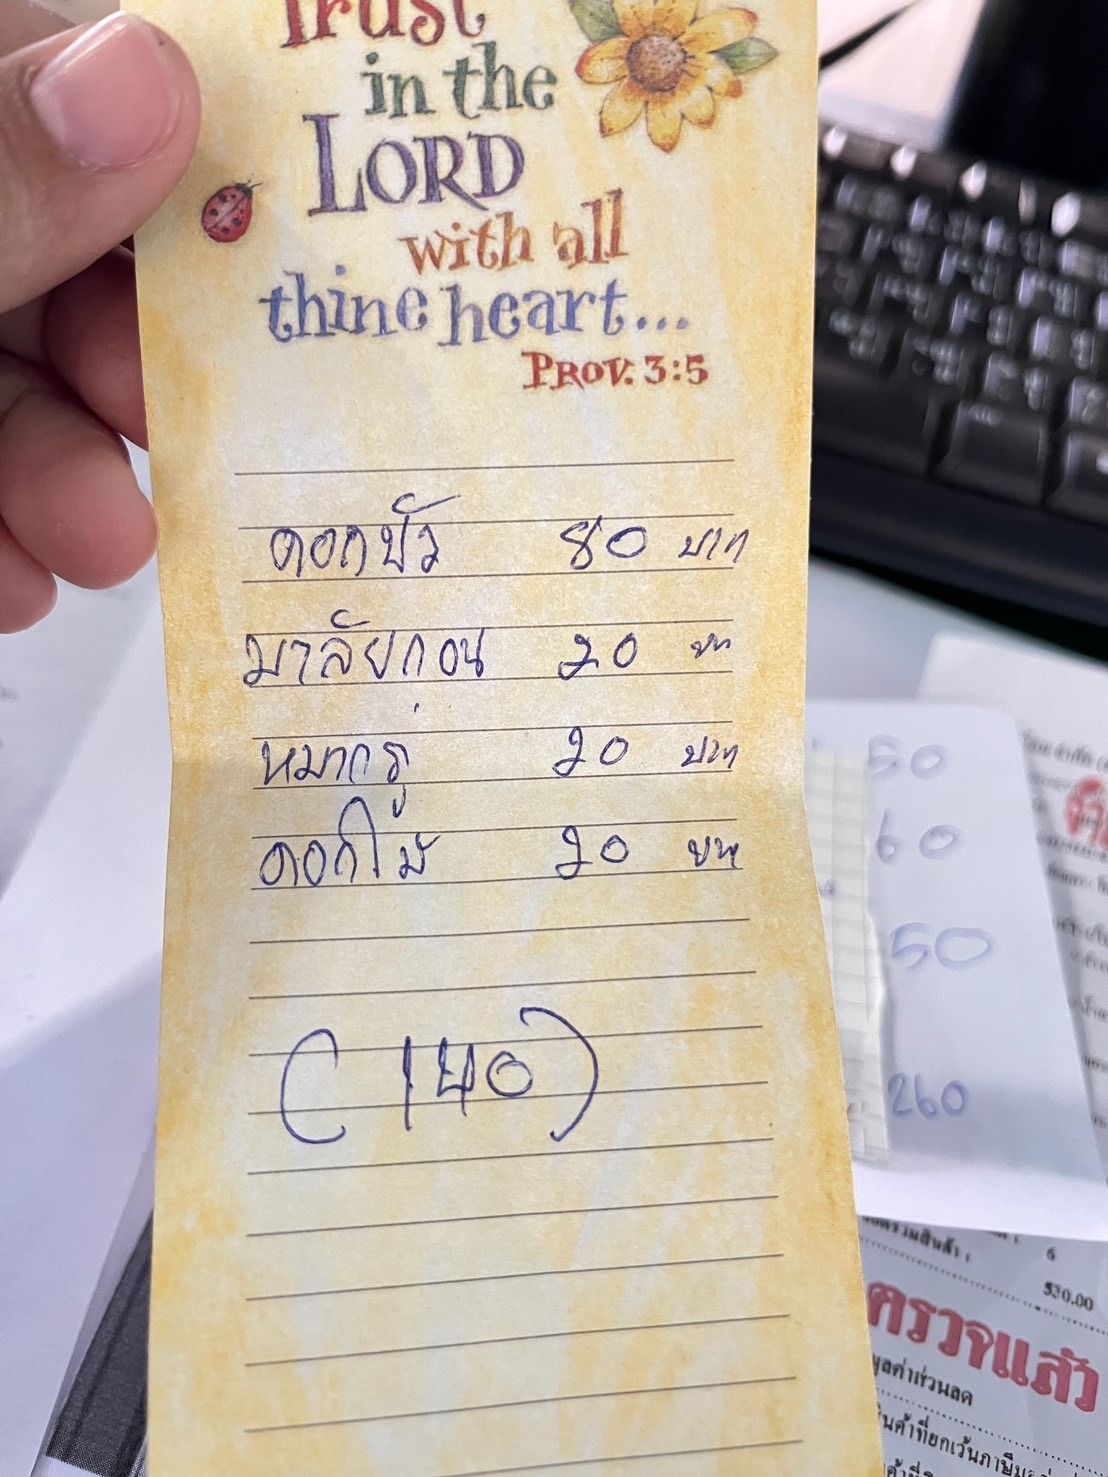 Trust
in the
LORD
with all
thine heart...
PROV. 3:5
ดอกบัว 80 บาท
มาลัยกอน 20 บาท
หมากรู 20 บาท
ดอกไม้ 20 บาท
(140)
50
60
50
260
6
530.00
ตรวจแล้ว
มูลค่าส่วนลด